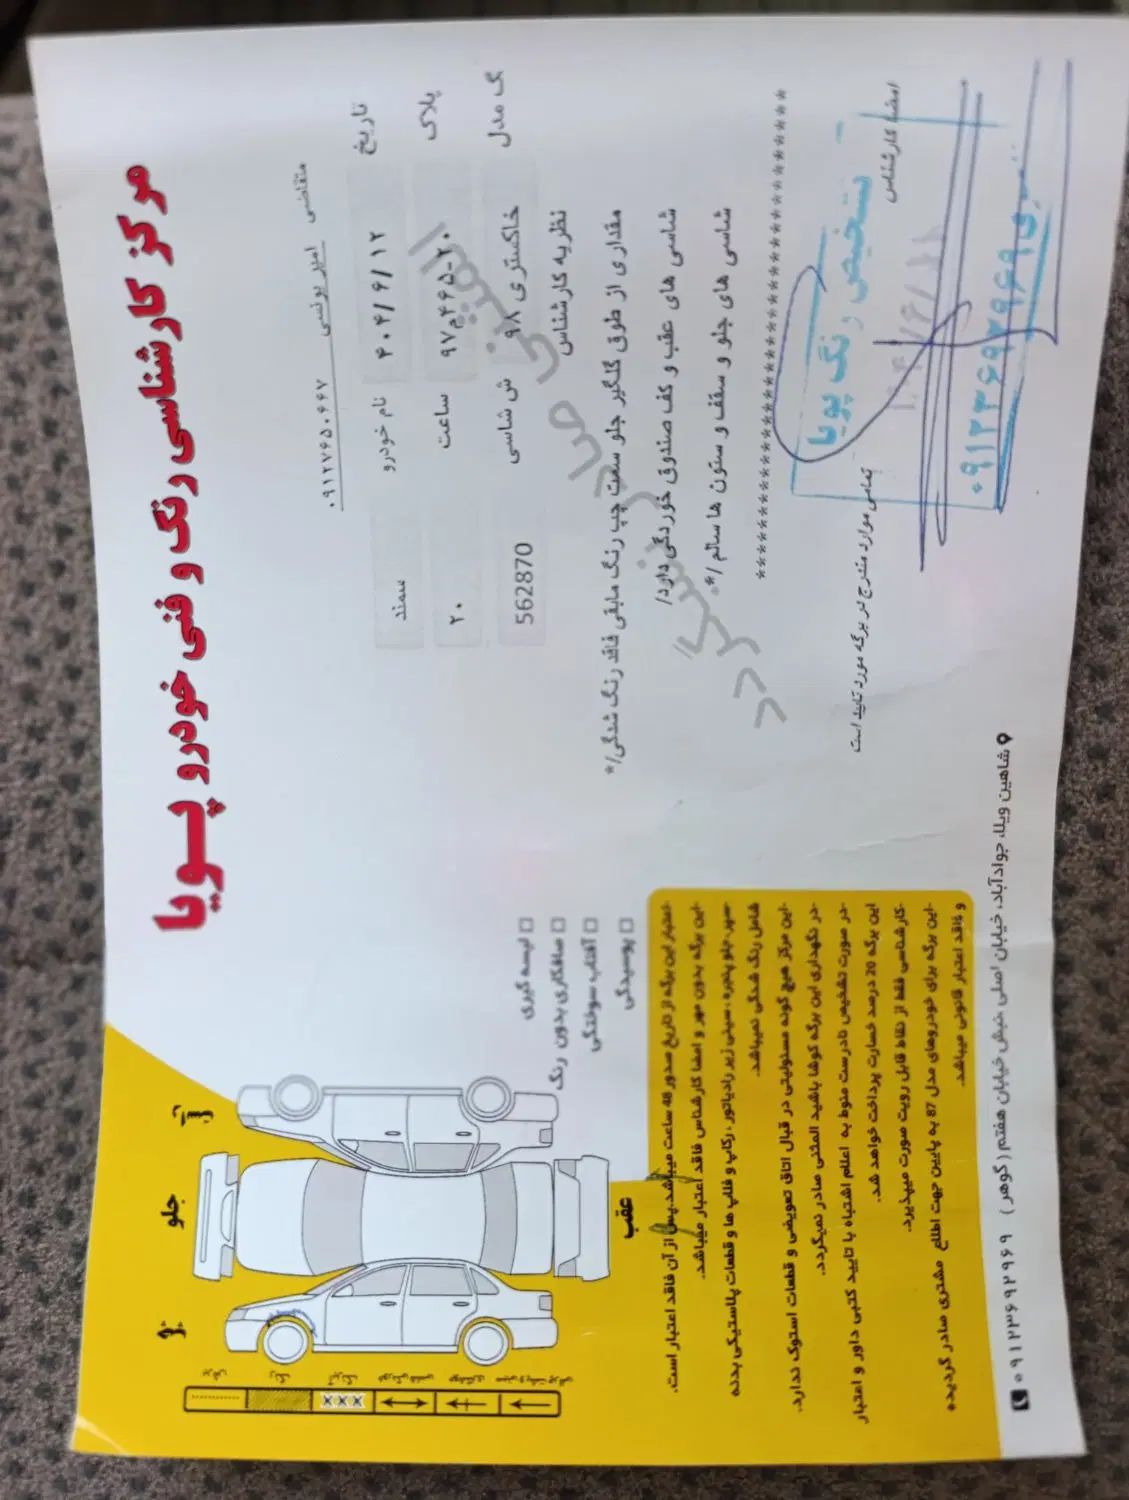 مرکز کارشناسی رنگ و فنی خودرو پویا
متقاضی امیر یونسی ۰۹۱۲۷۶۵۰۶۶۷
تاریخ ۴۰۴/۶/۱۲ نام خودرو سمند
پلاک ۲۰-۴۶۵م۹۷ ساعت ۲۰
گ مدل خاکستری ۹۸ ش شاسی 562870
نظریه کارشناس
مقداری از طوق گلگیر جلو سمت چپ رنگ مابقی فاقد رنگ شدگی/*
شاسی های عقب و کف صندوق خوردگی دارد/
شاسی های جلو و سقف و ستون ها سالم /*
المثنی صادر نمیگردد
امضا کارشناس
تمامی موارد مندرج در برگه مورد تایید است
تشخیص رنگ پویا
۰۹۱۲۳۶۹۲۹۶۹
راست
جلو
چپ
عقب
رنگ
لیسه گیری
صافکاری بدون رنگ
آفتاب سوختگی
پوسیدگی
اعتبار این برگه از تاریخ صدور 48 ساعت میباشد پس از آن فاقد اعتبار است.
-این برگه بدون مهر و امضا کارشناس فاقد اعتبار میباشد.
-سپر جلو پنجره ، سینی زیر رادیاتور ، رکاب و قلاب ها و قطعات پلاستیکی بدنه
شامل رنگ شدگی نمیباشد.
-این مرکز هیچ گونه مسئولیتی در قبال اتاق تعویضی و قطعات استوک ندارد.
-در نگهداری این برگه کوشا باشید المثنی صادر نمیگردد.
-در صورت تشخیص نادرست منوط به اعلام اشتباه با تایید کتبی داور و اعتبار
این برگه 20 درصد خسارت پرداخت خواهد شد.
-کارشناسی فقط از نقاط قابل رویت صورت میپذیرد.
-این برگه برای خودروهای مدل 87 به پایین جهت اطلاع مشتری صادر گردیده
و فاقد اعتبار قانونی میباشد.
شاهین ویلا، جوادآباد، خیابان اصلی ،نبش خیابان هفتم (گوهر) ۰۹۱۲۳۶۹۲۹۶۹